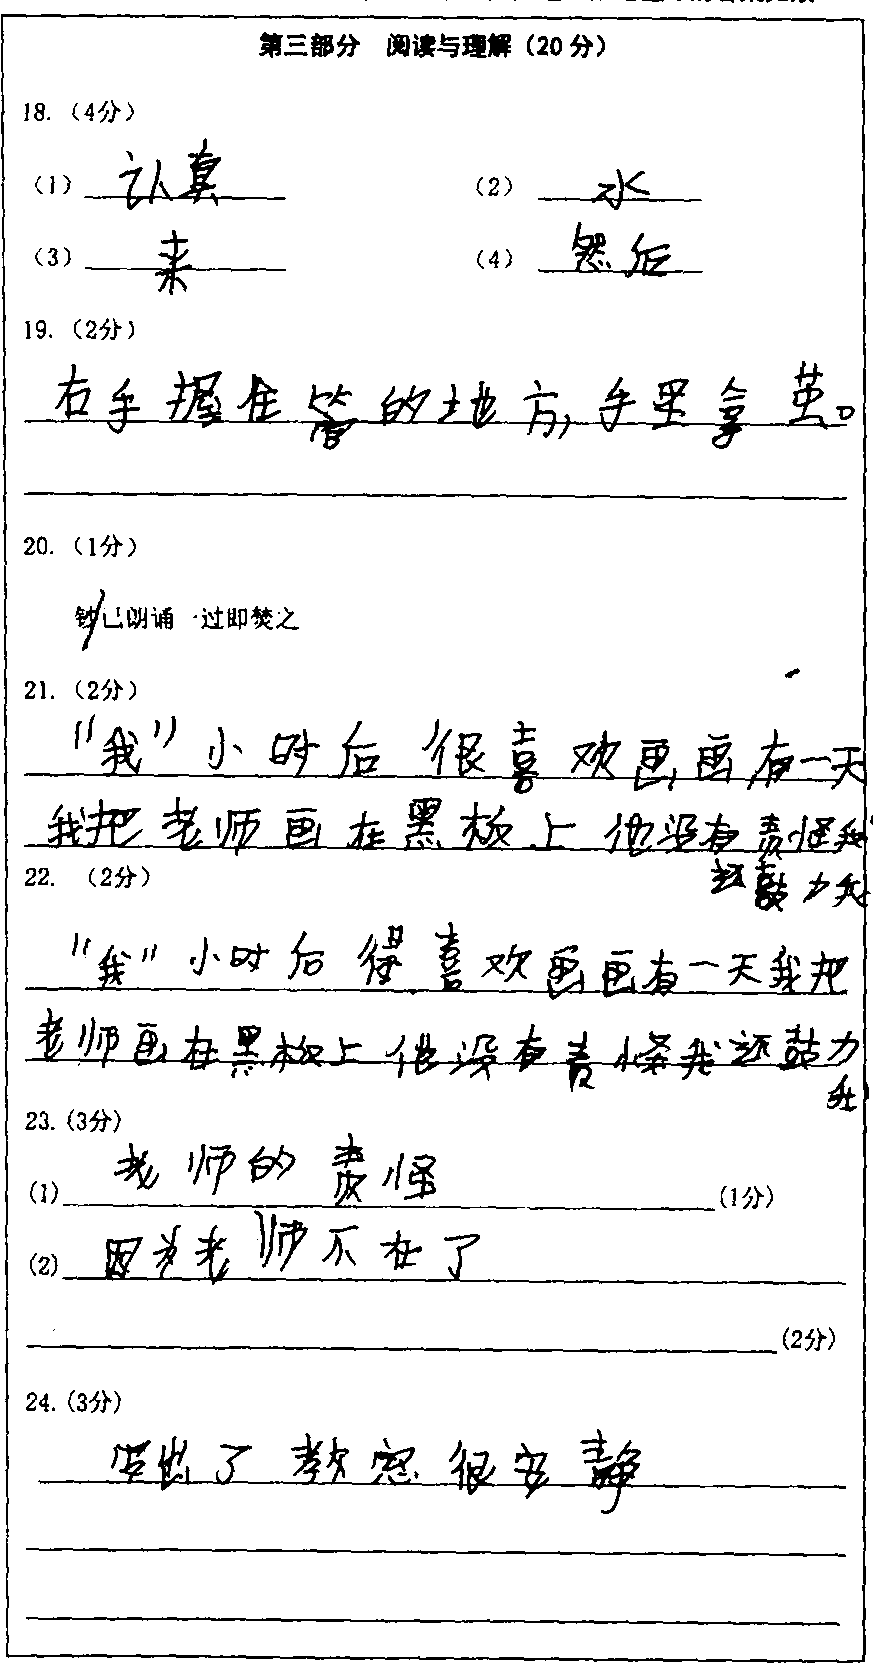 第三部分 阅读与理解（20分）
18.（4分）
（1） 认真 （2） 水
（3） 来 （4） 然后
19.（2分）
右手握住管的地方,手里拿茧。
20.（1分）
钞/已朗诵一过即焚之
21.（2分）
“我”小时后很喜欢画画有一天
我把老师画在黑板上他没有责怪我
还鼓力我
22.（2分）
“我”小时后很喜欢画画有一天我把
老师画在黑板上他没有责怪我还鼓力
我
23.(3分)
(1) 老师的责怪 (1分)
(2) 因为老师不在了
(2分)
24.(3分)
写出了教室很安静